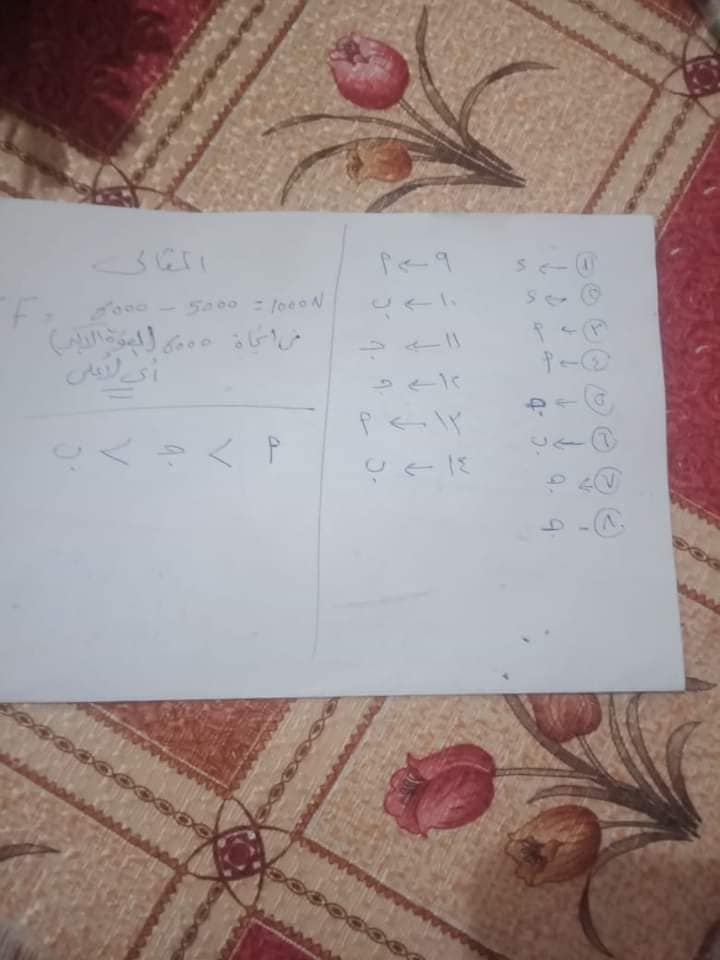 ① ← د
② ← د
③ ← م
④ ← م
⑤ ← جـ
⑥ ← ب
⑦ ← جـ
⑧ - جـ
٩ ← م
١٠ ← ب
١١ ← جـ
١٢ ← جـ
١٣ ← م
١٤ ← ب
المقالى
6000 - 5000 = 1000N
من اتجاة 6000 (القوة الأكبر)
أى لأعلى
م > جـ > ب